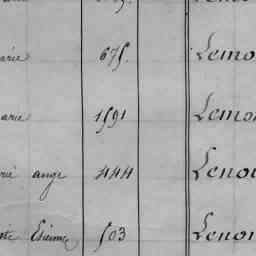 arie 675. Lemo
arie 1591 Lemo
rie ange 444 Leno
ste Etienne 503 Leno